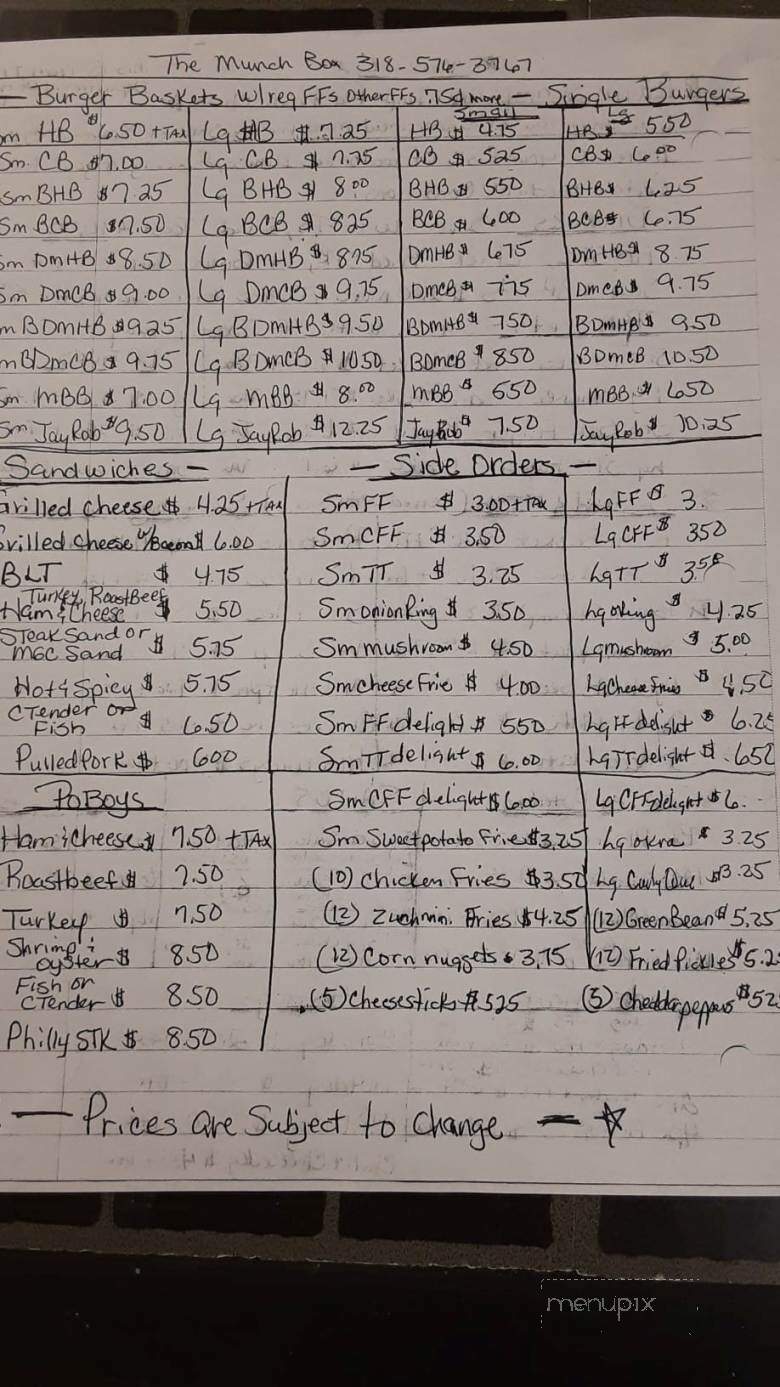 The Munch Box 318-576-3767
— Burger Baskets w/reg FFs Other FFs .75¢ more — Single Burgers
Small Lg
Sm HB $6.50 + TAX Lg HB $7.25 HB $4.75 HB $ 5.50
Sm. CB $7.00 Lg CB $7.75 CB $ 5.25 CB $ 6.00
Sm BHB $7.25 Lg BHB $ 8.00 BHB $ 5.50 BHB $ 6.25
Sm BCB $7.50 Lg BCB $ 8.25 BCB $ 6.00 BCB $ 6.75
Sm DmHB $8.50 Lg DmHB $ 8.75 DmHB $ 6.75 DmHB $ 8.75
Sm DmCB $9.00 Lg DmCB $ 9.75 DmCB $ 7.75 DmCB $ 9.75
m BDmHB $9.25 Lg BDmHB $ 9.50 BDmHB $ 7.50 BDmHB $ 9.50
mBDmCB $ 9.75 Lg BDmCB $ 10.50 BDmCB $ 8.50 BDmCB 10.50
Sm. mBB $ 7.00 Lg mBB $ 8.00 mBB $ 6.50 mBB $ 6.50
Sm JayRob $9.50 Lg JayRob $ 12.25 JayRob $ 7.50 JayRob $ 10.25
Sandwiches — — Side Orders —
Grilled Cheese $ 4.25 + TAX Sm FF $ 3.00 + TAX Lg FF $ 3.
Grilled Cheese w/Bacon $ 6.00 Sm CFF $ 3.50 Lg CFF $ 3.50
BLT $ 4.75 Sm TT $ 3.25 Lg TT $ 3.50
Turkey, RoastBeef
Ham & Cheese $ 5.50 Sm onion Ring $ 3.50 Lg oRing $ 4.25
Steak Sand or
MGC Sand $ 5.75 Sm mushroom $ 4.50 Lg mushroom $ 5.00
Hot & Spicy $ 5.75 Sm cheese Frie $ 4.00 Lg Cheese Fries $ 4.50
CTender or
Fish $ 6.50 Sm FF delight $ 5.50 Lg FF delight $ 6.25
Pulled Pork $ 6.00 Sm TT delight $ 6.00 Lg TT delight $ 6.50
PoBoys Sm CFF delight $ 6.00 Lg CFF delight $ 6.
Ham & Cheese $ 7.50 + TAX Sm Sweet potato Fries $3.25 Lg okra $ 3.25
Roastbeef $ 7.50 (10) Chicken Fries $3.50 Lg Curly Que $3.25
Turkey $ 7.50 (12) Zuchinni Fries $4.25 (12) Green Bean $ 5.25
Shrimp &
oyster $ 8.50 (12) Corn nuggets $ 3.75 (12) Fried Pickles $5.2
Fish or
CTender $ 8.50 (5) Cheesesticks $ 5.25 (5) Cheddar peppers $52
Philly STK $ 8.50
— Prices are Subject to Change —
menupix